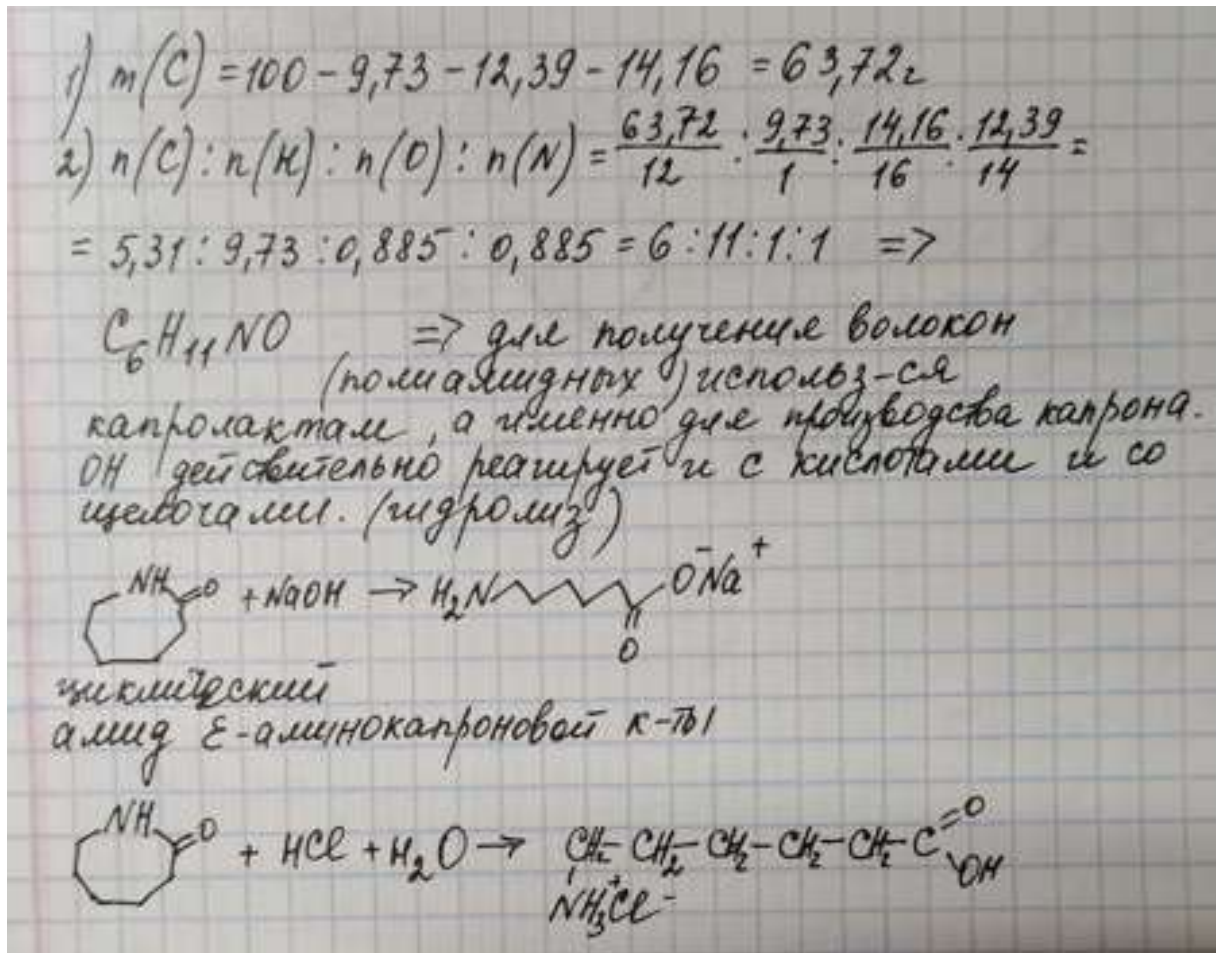 1) m(C) = 100 - 9,73 - 12,39 - 14,16 = 63,72г
2) n(C) : n(H) : n(O) : n(N) = 63,72/12 : 9,73/1 : 14,16/16 : 12,39/14 =
= 5,31 : 9,73 : 0,885 : 0,885 = 6 : 11 : 1 : 1 =>
C₆H₁₁NO => для получения волокон
(полиамидных) использ-ся
капролактам, а именно для производства капрона.
Он действительно реагирует и с кислотами и со
щелочами. (гидролиз)
NH O + NaOH → H₂N O⁻Na⁺
O
циклический
амид ε-аминокапроновой к-ты
NH O + HCl + H₂O → CH₂-CH₂-CH₂-CH₂-CH₂-C=O
OH
NH₃⁺Cl⁻